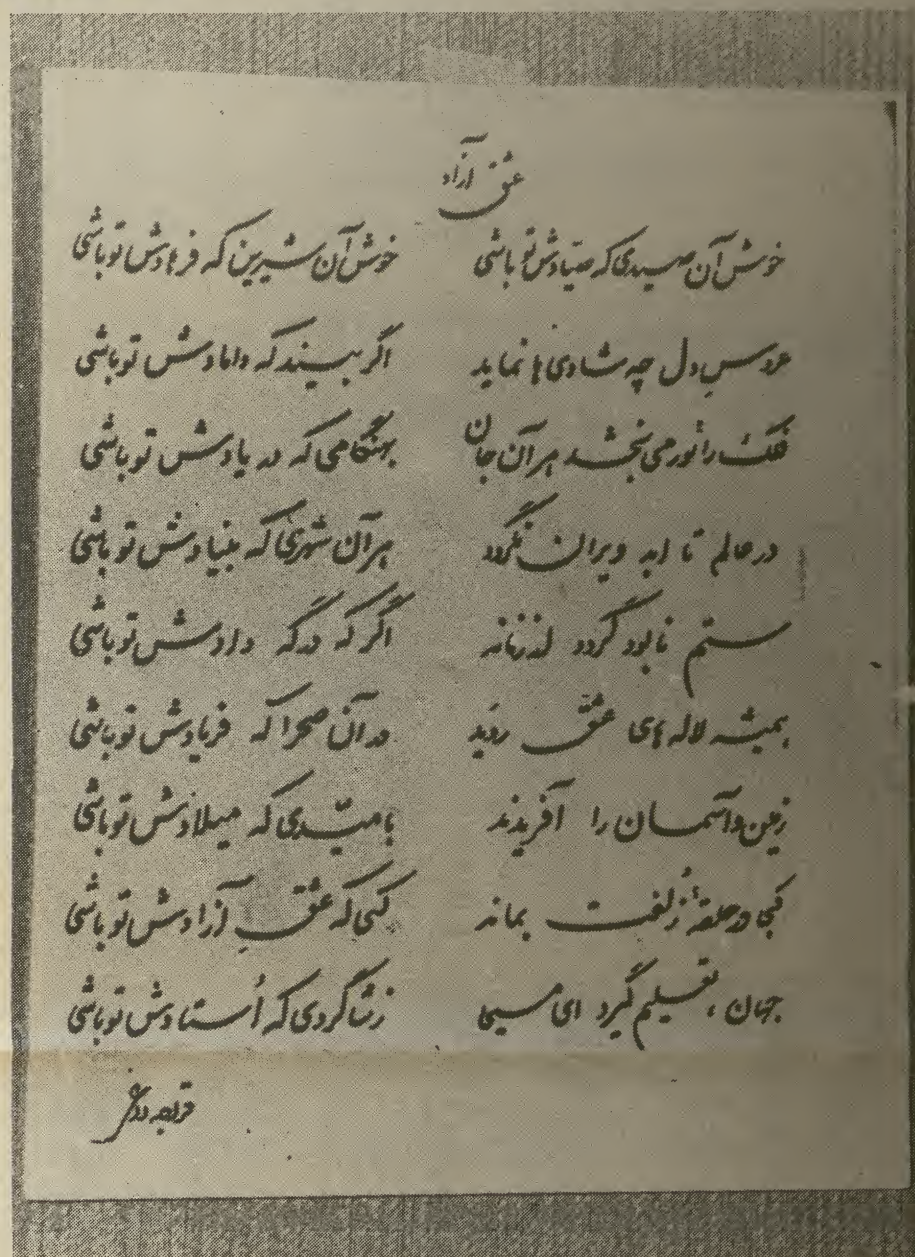 عشق آزاد
خوش آن صیدی که صیادش تو باشی خوش آن شیرین که فرهادش تو باشی
عروس دل چه شادی ها نماید اگر بیند که دامادش تو باشی
فلک را نور می بخشد هر آن جان بهنگامی که در یادش تو باشی
در عالم تا ابد ویران نگردد هر آن شهری که بنیادش تو باشی
ستم نابود گردد از زمانه اگر که درگه دادش تو باشی
همیشه لاله های عشق روید در آن صحرا که فریادش تو باشی
زمین و آسمان را آفریدند بامیّدی که میلادش تو باشی
کجا در حلقهٔ زُلفت بماند کسی که عشقِ آزادش تو باشی
جهان ، تعلیم گیرد ای مسیحا زشاگردی که اُستادش تو باشی